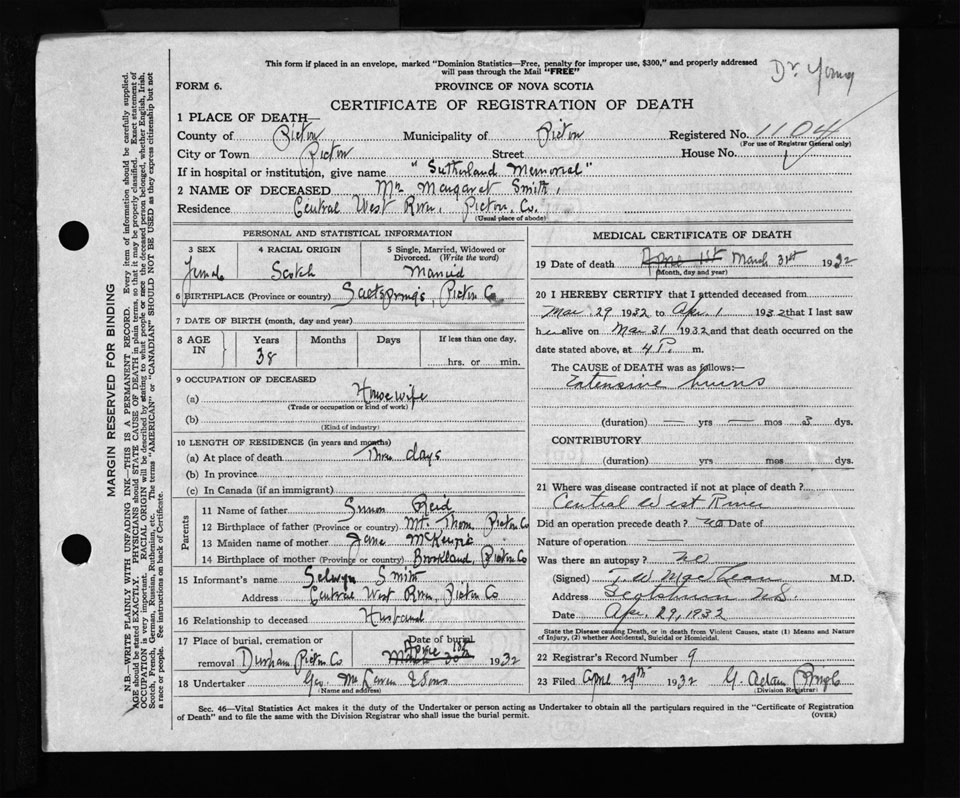 This form if placed in an envelope, marked "Dominion Statistics—Free, penalty for improper use, $300," and properly addressed
will pass through the Mail "FREE"
Dr Young
FORM 6.
PROVINCE OF NOVA SCOTIA
CERTIFICATE OF REGISTRATION OF DEATH
1 PLACE OF DEATH
County of Pictou Municipality of Pictou Registered No. 1104
(For use of Registrar General only)
City or Town Pictou Street House No.
If in hospital or institution, give name "Sutherland Memorial"
2 NAME OF DECEASED Mrs Margaret Smith,
Residence Central West River, Pictou, Co.
(Usual place of abode)
PERSONAL AND STATISTICAL INFORMATION
3 SEX 4 RACIAL ORIGIN 5 Single, Married, Widowed or
Divorced. (Write the word)
Female Scotch Married
6 BIRTHPLACE (Province or country) Saltsprings Pictou Co
7 DATE OF BIRTH (month, day and year)
8 AGE
IN
Years Months Days If less than one day.
38 hrs. or min.
9 OCCUPATION OF DECEASED
(a) Housewife
(Trade or occupation or kind of work)
(b)
(Kind of industry)
10 LENGTH OF RESIDENCE (in years and months)
(a) At place of death Three days
(b) In province
(c) In Canada (if an immigrant)
Parents
11 Name of father Simon Reid
12 Birthplace of father (Province or country) Mt. Thom Pictou Co
13 Maiden name of mother Jane McKenzie
14 Birthplace of mother (Province or country) Brookland, Pictou Co
15 Informant's name Selwyn Smith
Address Central West River, Pictou Co
16 Relationship to deceased Husband
17 Place of burial, cremation or Date of burial
removal Durham Pictou Co 1932
18 Undertaker Geo. & Sons
(Name and address)
MEDICAL CERTIFICATE OF DEATH
19 Date of death April 1st March 31st 1932
(Month, day and year)
20 I HEREBY CERTIFY that I attended deceased from
Mar. 29 1932 to Apr. 1 1932 that I last saw
her alive on Mar 31 1932 and that death occurred on the
date stated above, at 4 P. m.
The CAUSE of DEATH was as follows:—
Extensive burns
(duration) — yrs — mos 3 dys.
CONTRIBUTORY
(duration) yrs. mos. dys.
21 Where was disease contracted if not at place of death?
Central West River
Did an operation precede death? no Date of
Nature of operation —
Was there an autopsy? no
(Signed) T. W. MacLean M.D.
Address Scotsburn N.S.
Date Apr. 29, 1932
State the Disease causing Death, or in death from Violent Causes, state (1) Means and Nature
of Injury, (2) whether Accidental, Suicidal or Homicidal.
22 Registrar's Record Number 9
23 Filed April 29th 1932 G.
(Division Registrar)
Sec. 46—Vital Statistics Act makes it the duty of the Undertaker or person acting as Undertaker to obtain all the particulars required in the "Certificate of Registration
of Death" and to file the same with the Division Registrar who shall issue the burial permit. (OVER)
MARGIN RESERVED FOR BINDING
N.B.—WRITE PLAINLY WITH UNFADING INK—THIS IS A PERMANENT RECORD. Every item of information should be carefully supplied.
AGE should be stated EXACTLY. PHYSICIANS should STATE CAUSE OF DEATH in plain terms, so that it may be properly classified. Exact statement of
OCCUPATION is very important. RACIAL ORIGIN will be described by stating to what people or race the deceased person belonged, whether English, Irish,
Scotch, French, German, Russian, Ruthenian, etc. The terms "AMERICAN" or "CANADIAN" SHOULD NOT BE USED as they express citizenship but not
a race or people. See instructions on back of Certificate.